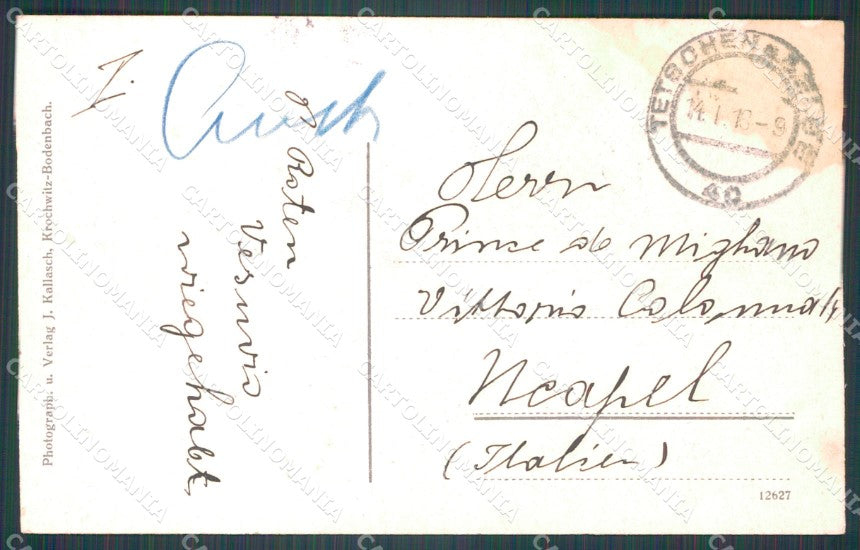 Photograph. u. Verlag J. Kallasch, Krochwitz-Bodenbach.
Roten
Vesuvio
wiegehabt,
TETSCHEN
14.I.
Herrn
Prince de Mighano
Vittorio Colonna
Neapel
(Italien)
12627
CARTOLINOMANIA